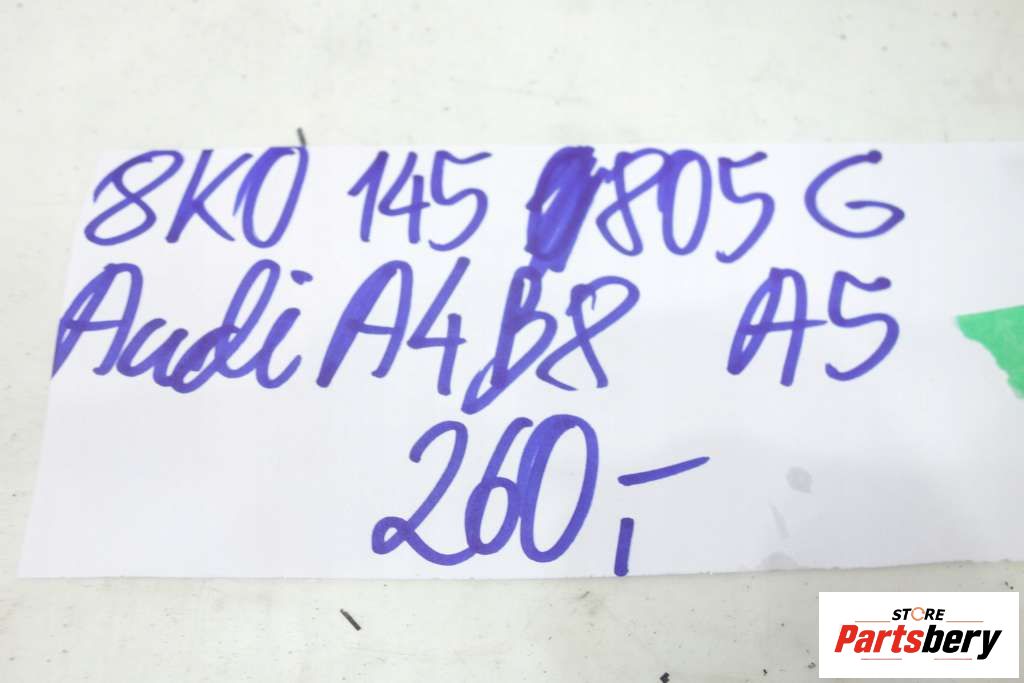 8K0 145 805 G
Audi A4 B8 A5
260,-
STORE
Partsbery